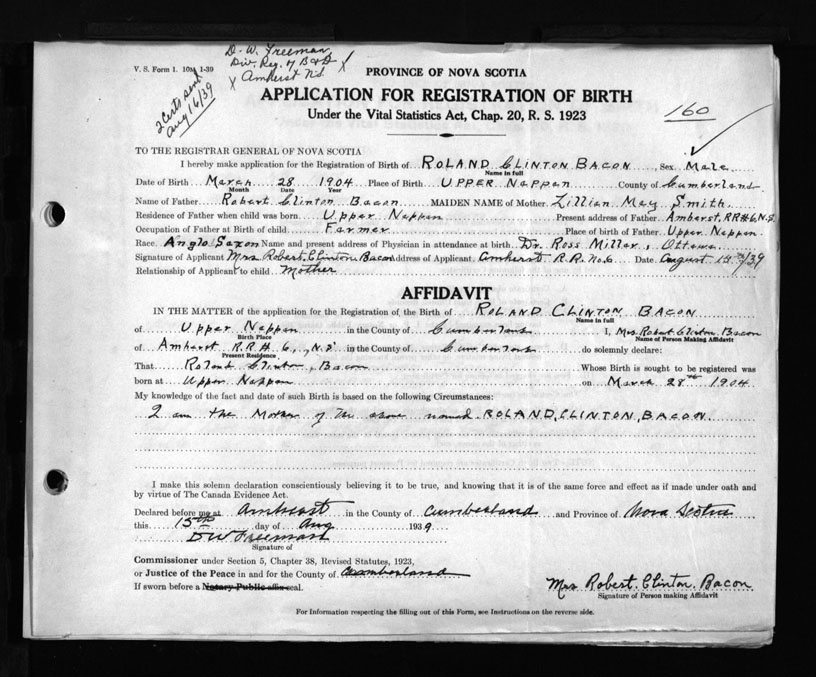 V. S. Form 1. 10M 1-39
D. W. Freeman
Div. Reg. of B & D
x Amherst N.S. x
2 Certs sent
Aug 16/39
160
PROVINCE OF NOVA SCOTIA
APPLICATION FOR REGISTRATION OF BIRTH
Under the Vital Statistics Act, Chap. 20, R. S. 1923
TO THE REGISTRAR GENERAL OF NOVA SCOTIA
I hereby make application for the Registration of Birth of ROLAND CLINTON BACON, Sex Male
Name in full
Date of Birth March 28 1904 Place of Birth UPPER Nappan County of Cumberland
Month Date Year
Name of Father Robert Clinton Bacon MAIDEN NAME of Mother Lillian May Smith.
Residence of Father when child was born. Upper Nappan Present address of Father Amherst, RR#6, N.S.
Occupation of Father at Birth of child Farmer Place of birth of Father Upper Nappan.
Race. Anglo Saxon Name and present address of Physician in attendance at birth Dr. Ross Millar, Ottawa
Signature of Applicant Mrs Robert Clinton Bacon Address of Applicant Amherst R.R. No. 6 Date August 15th/39
Relationship of Applicant to child Mother
AFFIDAVIT
IN THE MATTER of the application for Registration of the Birth of ROLAND CLINTON BACON
Name in full
of Upper Nappan in the County of Cumberland I, Mrs. Robert Clinton Bacon
Birth Place Name of Person Making Affidavit
of Amherst R.R# 6, N.S. in the County of Cumberland do solemnly declare:
Present Residence
That Roland Clinton, Bacon Whose Birth is sought to be registered was
born at Upper Nappan on March 28th 1904
My knowledge of the fact and date of such Birth is based on the following Circumstances:
I am the Mother of the above named ROLAND, CLINTON, BACON.
I make this solemn declaration conscientiously believing it to be true, and knowing that it is of the same force and effect as if made under oath and
by virtue of The Canada Evidence Act.
Declared before me at Amherst in the County of Cumberland and Province of Nova Scotia
this 15th day of Aug 1939
D W Freeman
Signature of
Commissioner under Section 5, Chapter 38, Revised Statutes, 1923,
or Justice of the Peace in and for the County of Cumberland
If sworn before a Notary Public affix seal.
Mrs Robert. Clinton. Bacon
Signature of Person making Affidavit
For Information respecting the filling out of this Form, see Instructions on the reverse side.